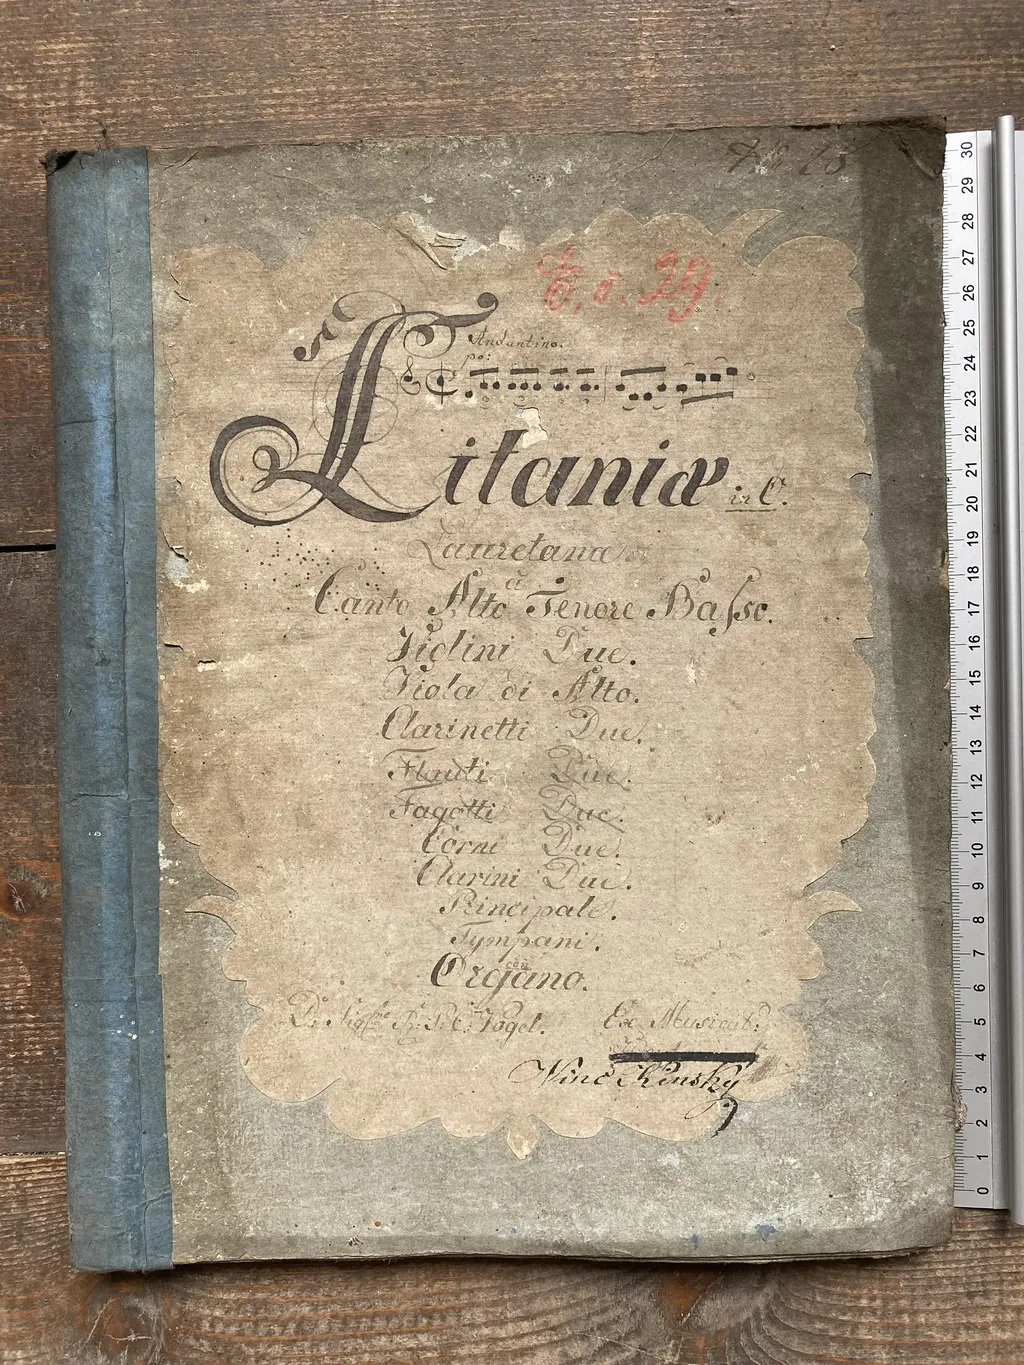 29.
Andantino.
po:
Litaniæ in C.
Lauretanæ
à
Canto Alto Tenore Basso.
Violini Due.
Viola di Alto.
Clarinetti Due.
Flauti Due.
Fagotti Due.
Corni Due.
Clarini Due.
Principale.
Tympani.
con
Organo.
Vogel. Ex Musicalib:
Winc Kinsky
30
29
28
27
26
25
24
23
22
21
20
19
18
17
16
15
14
13
12
11
10
9
8
7
6
5
4
3
2
1
0